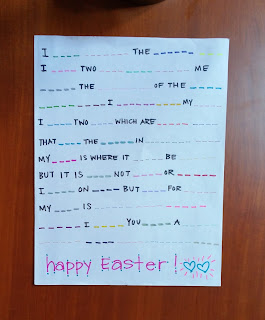 I THE
I TWO ME
THE OF THE
I MY
I TWO WHICH ARE
THAT THE IN
MY IS WHERE IT BE
BUT IT IS NOT OR
I ON BUT FOR
MY IS
I YOU A
happy Easter!